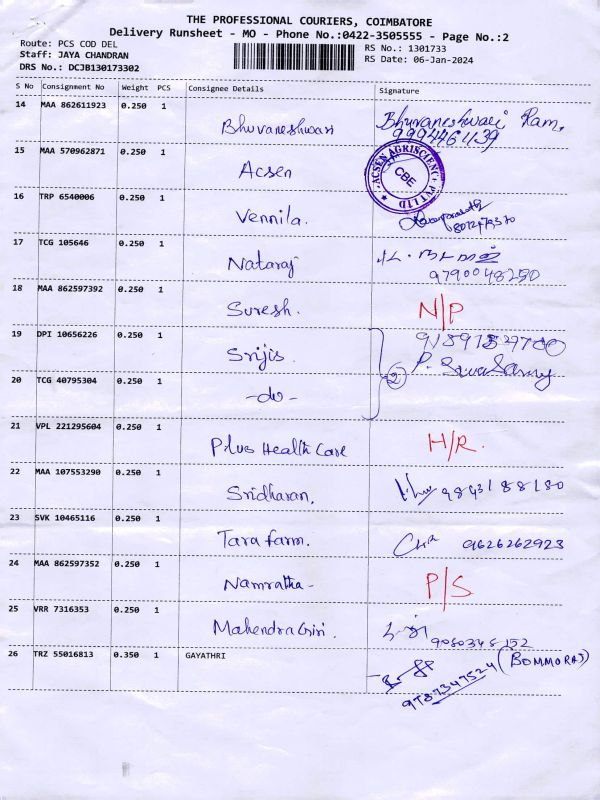 THE PROFESSIONAL COURIERS, COIMBATORE
Delivery Runsheet - MO - Phone No.:0422-3505555 - Page No.:2
Route: PCS COD DEL
Staff: JAYA CHANDRAN
DRS No.: DCJB130173302
RS No.: 1301733
RS Date: 06-Jan-2024
S No Consignment No Weight PCS Consignee Details Signature
14 MAA 862611923 0.250 1 Bhuvaneshwari Bhuvaneshwari Ram,
9994461139
15 MAA 570962871 0.250 1 Acsen
ACSEN AGRISCIENCE PVT LTD
CBE
16 TRP 6540006 0.250 1 Vennila.
17 TCG 105646 0.250 1 Nataraj
9790048250
18 MAA 862597392 0.250 1 Suresh. N/P
19 DPI 10656226 0.250 1 Srijis.
20 TCG 40795304 0.250 1 -do- 2 P.
21 VPL 221295604 0.250 1 Plus Health Care H/R.
22 MAA 107553290 0.250 1 Sridharan, 9843188180
23 SVK 10465116 0.250 1 Tara farm. 9626262923
24 MAA 862597352 0.250 1 Namratha- P/S
25 VRR 7316353 0.250 1 Mahendra Giri.
26 TRZ 55016813 0.350 1 GAYATHRI
9787347524 (BOMMORAJ)